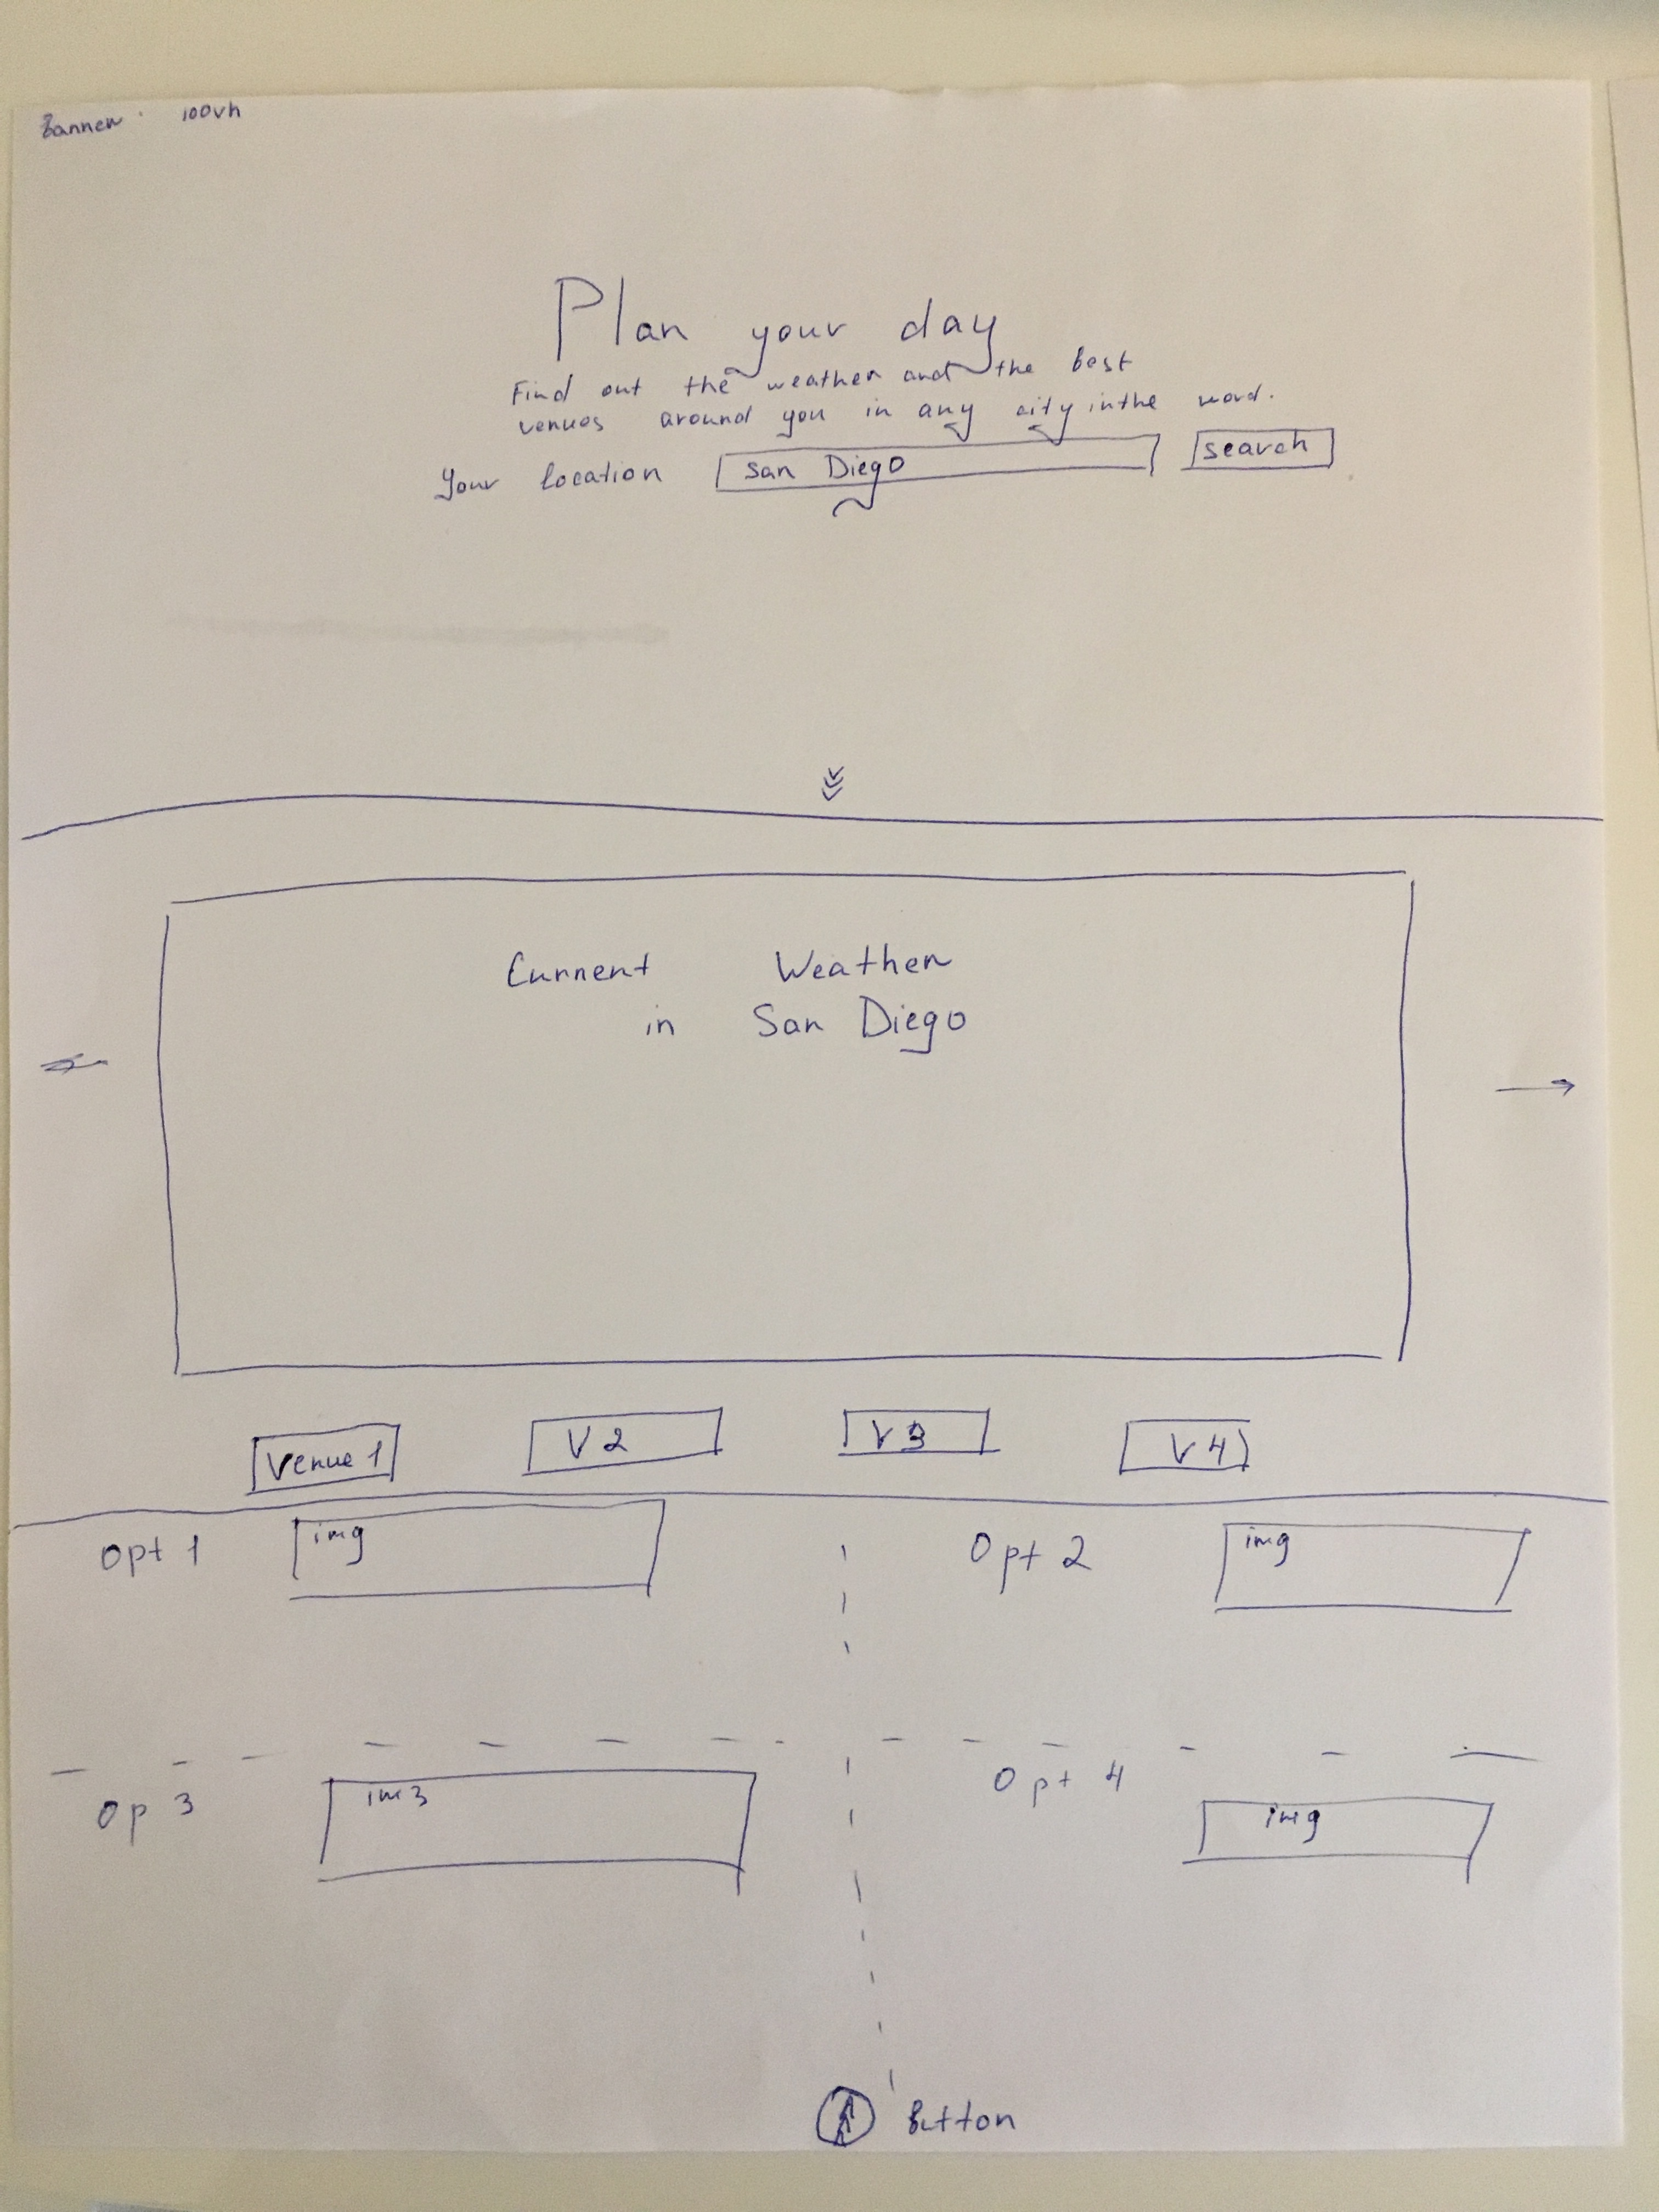 Banner 100vh
Plan your day
Find out the weather and the best
venues around you in any city in the word.
Your location San Diego search
Current Weather
in San Diego
Venue 1 V2 V3 V4
Opt 1 img Opt 2 img
Op 3 im3 Opt 4 img
Button